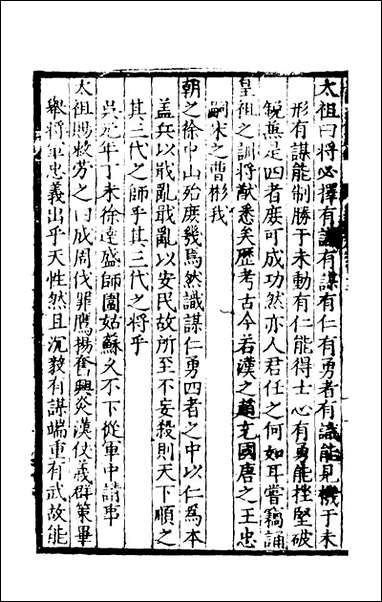 太祖曰將必擇有識有謀有仁有勇者有識能見機于未
形有謀能制勝于未動有仁能得士心有勇能摧堅破
銳兼是四者庶可成功然亦人君任之何如耳嘗竊誦
皇祖之訓將猷悉矣歷考古今若漢之趙充國唐之王忠
嗣宋之曹彬我
朝之徐中山殆庶幾焉然識謀仁勇四者之中以仁為本
蓋兵以戡亂戡亂以安民故所至不妄殺則天下順之
其三代之師乎其三代之將乎
吳元年丁未徐達盛師圍姑蘇久不下從軍中請事
太祖賜敕勞之曰成周伐罪鷹揚奮興炎漢仗義群策畢
舉將軍忠義出乎天性然且沉毅有謀端重有武故能